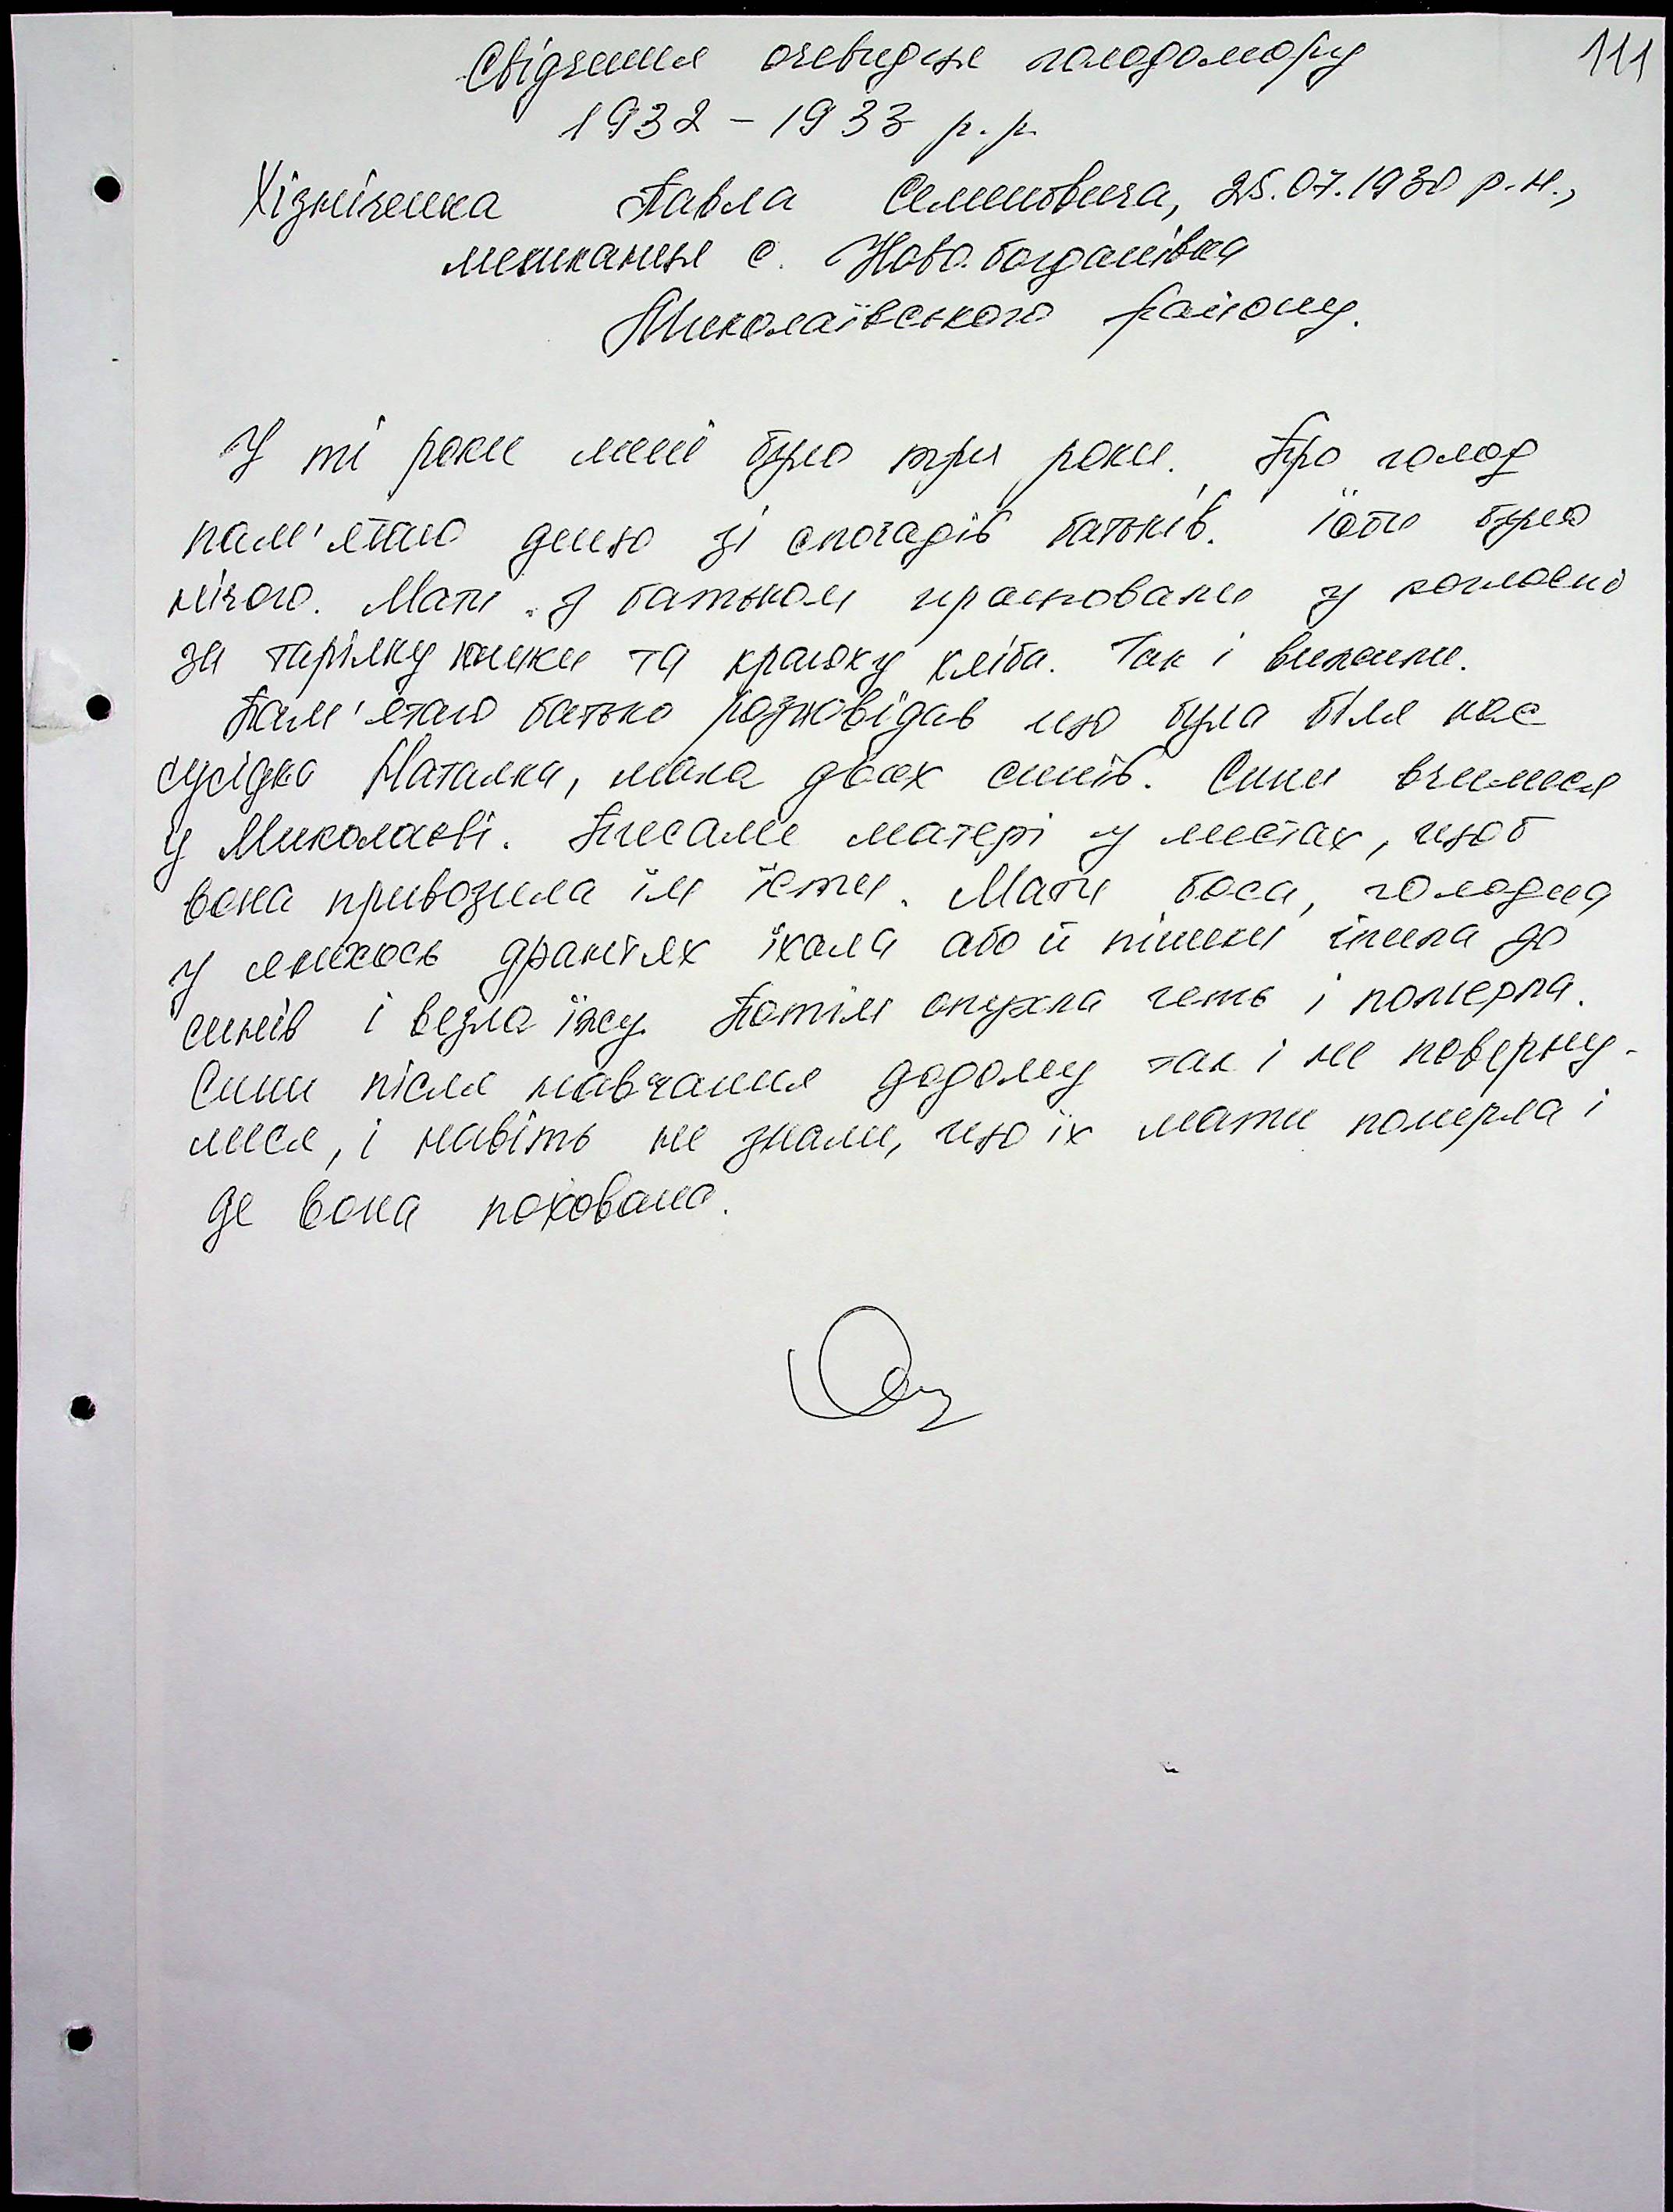 111
Свідчення очевидця голодомору
1932 – 1933 р.р.
Хізніченка Павла Семеновича, 25.07.1930 р.н.,
мешканця с. Новобогданівка
Миколаївського району.
У ті роки мені було три роки. Про голод
пам'ятаю дещо зі спогадів батьків. Їсти було
нічого. Мати з батьком працювали у колгоспі
за тарілку юшки та крайку хліба. Так і вижили.
Пам'ятаю батько розповідав що була біля нас
сусідка Наталка, мала двох синів. Сини вчилися
у Миколаєві. Писали матері у листах, щоб
вона привозила їм їсти. Мати боса, голодна
у якихось дрантях їхала або й пішки ішла до
синів і везла їжу. Потім опухла геть і померла.
Сини після навчання додому так і не поверну-
лися, і навіть не знали, що їх мати померла і
де вона похована.